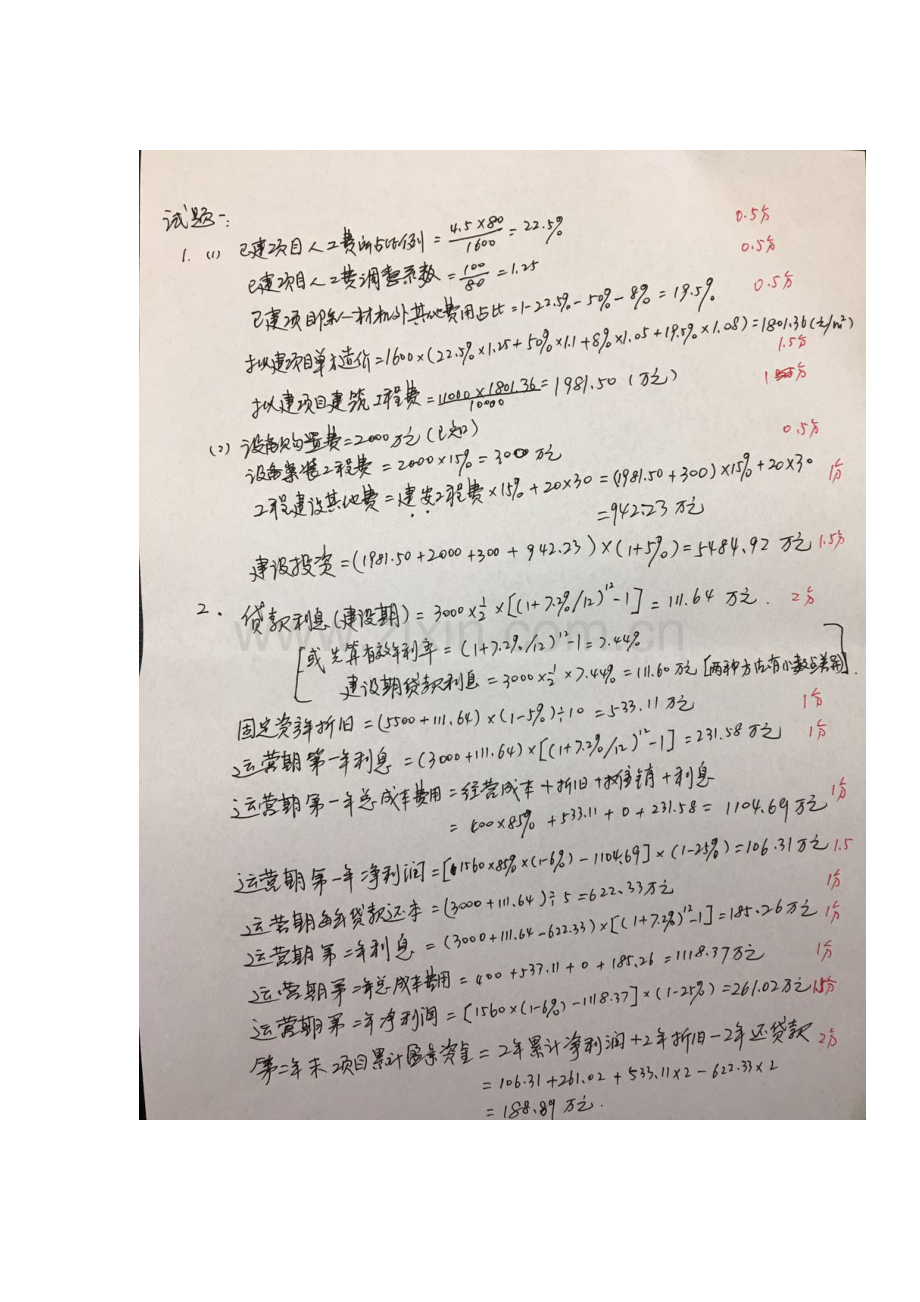 试题一：
0.5分
1. (1) 已建项目人工费所占比例 = 4.5×80/1600 = 22.5%
0.5分
已建项目人工费调整系数 = 100/80 = 1.25
0.5分
已建项目除人材机外其他费用占比 = 1-22.5%-50%-8% = 19.5%
拟建项目单方造价 = 1600×(22.5%×1.25+50%×1.1+8%×1.05+19.5%×1.08) = 1801.36(元/m²)
1.5分
拟建项目建筑工程费 = 11000×1801.36/10000 = 1981.50 (万元) 1分
(2) 设备购置费 = 2000万元 (已知)
0.5分
设备安装工程费 = 2000×15% = 300万元
工程建设其他费 = 建安工程费×15%+20×30 = (1981.50+300)×15%+20×30 1分
= 942.23 万元
建设投资 = (1981.50+2000+300+942.23)×(1+5%) = 5484.92 万元 1.5分
2. 贷款利息(建设期) = 3000×½×[(1+7.2%/12)¹²-1] = 111.64 万元. 2分
[或先算有效年利率 = (1+7.2%/12)¹²-1 = 7.44%
建设期贷款利息 = 3000×½×7.44% = 111.60万元 [两种方法有小数点差别].
固定资产年折旧 = (5500+111.64)×(1-5%)÷10 = 533.11万元 1分
运营期第一年利息 = (3000+111.64)×[(1+7.2%/12)¹²-1] = 231.58万元 1分
运营期第一年总成本费用 = 经营成本+折旧+摊销+利息
= 400×85%+533.11+0+231.58 = 1104.69万元 1分
运营期第一年净利润 = [1560×85%×(1-6%)-1104.69]×(1-25%) = 106.31万元 1.5
运营期每年贷款还本 = (3000+111.64)÷5 = 622.33万元 1分
运营期第二年利息 = (3000+111.64-622.33)×[(1+7.2%)¹²-1] = 185.26万元 1分
运营期第二年总成本费用 = 400+533.11+0+185.26 = 1118.37万元 1分
运营期第二年净利润 = [1560×(1-6%)-1118.37]×(1-25%) = 261.02万元 1.5分
第二年末项目累计盈余资金 = 2年累计净利润+2年折旧-2年还贷款 2分
= 106.31+261.02+533.11×2-622.33×2
= 188.89 万元.